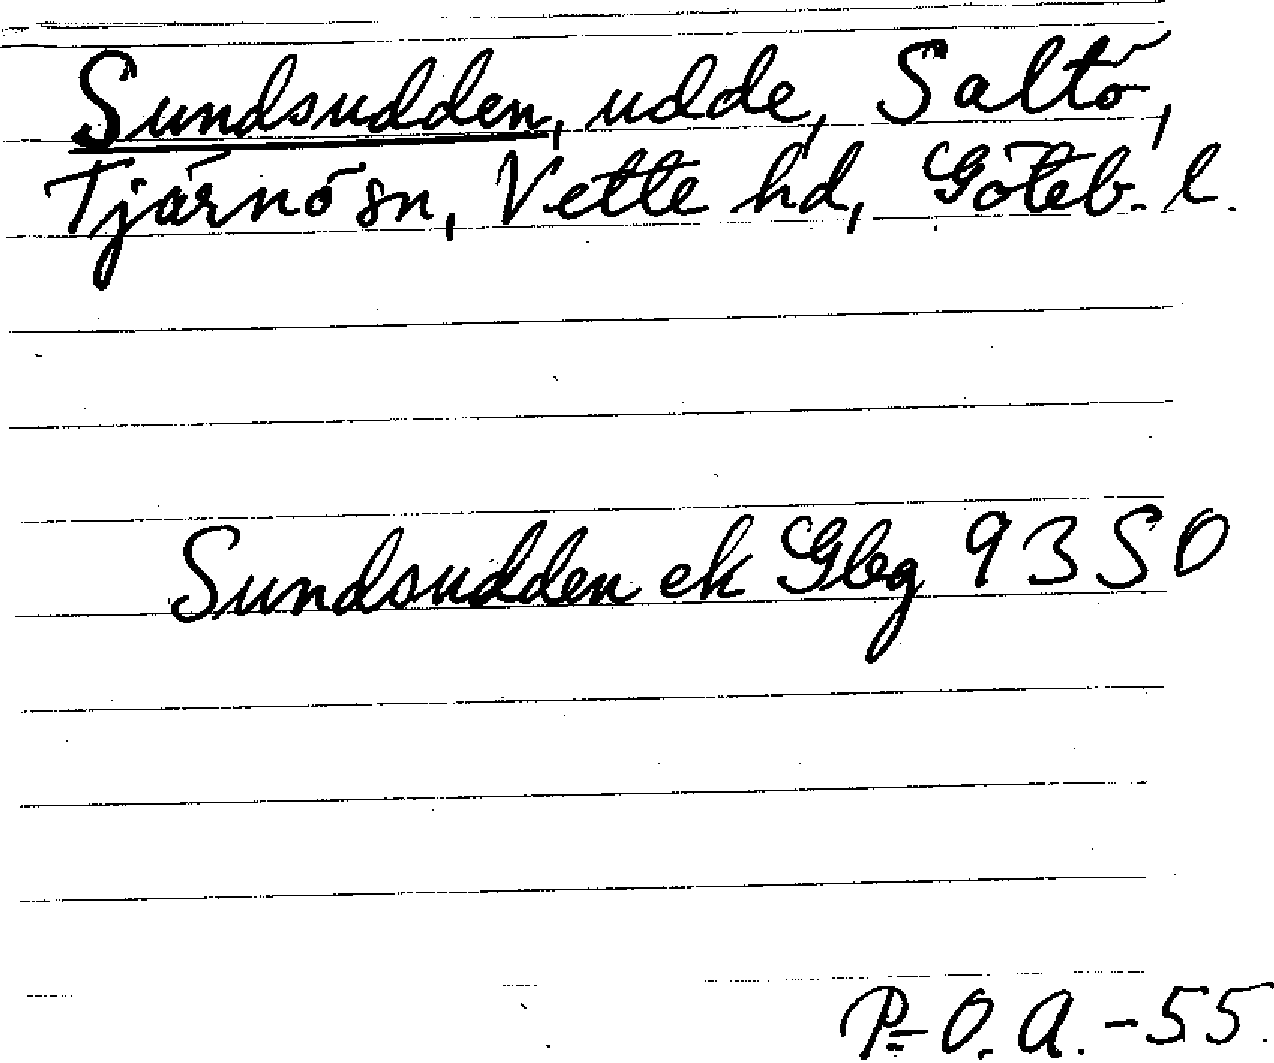 Sundsudden, udde, Saltö,
Tjärnö sn, Vette hd, Göteb. l.
Sundsudden ek Gbg 9350
P-O. A. -55.